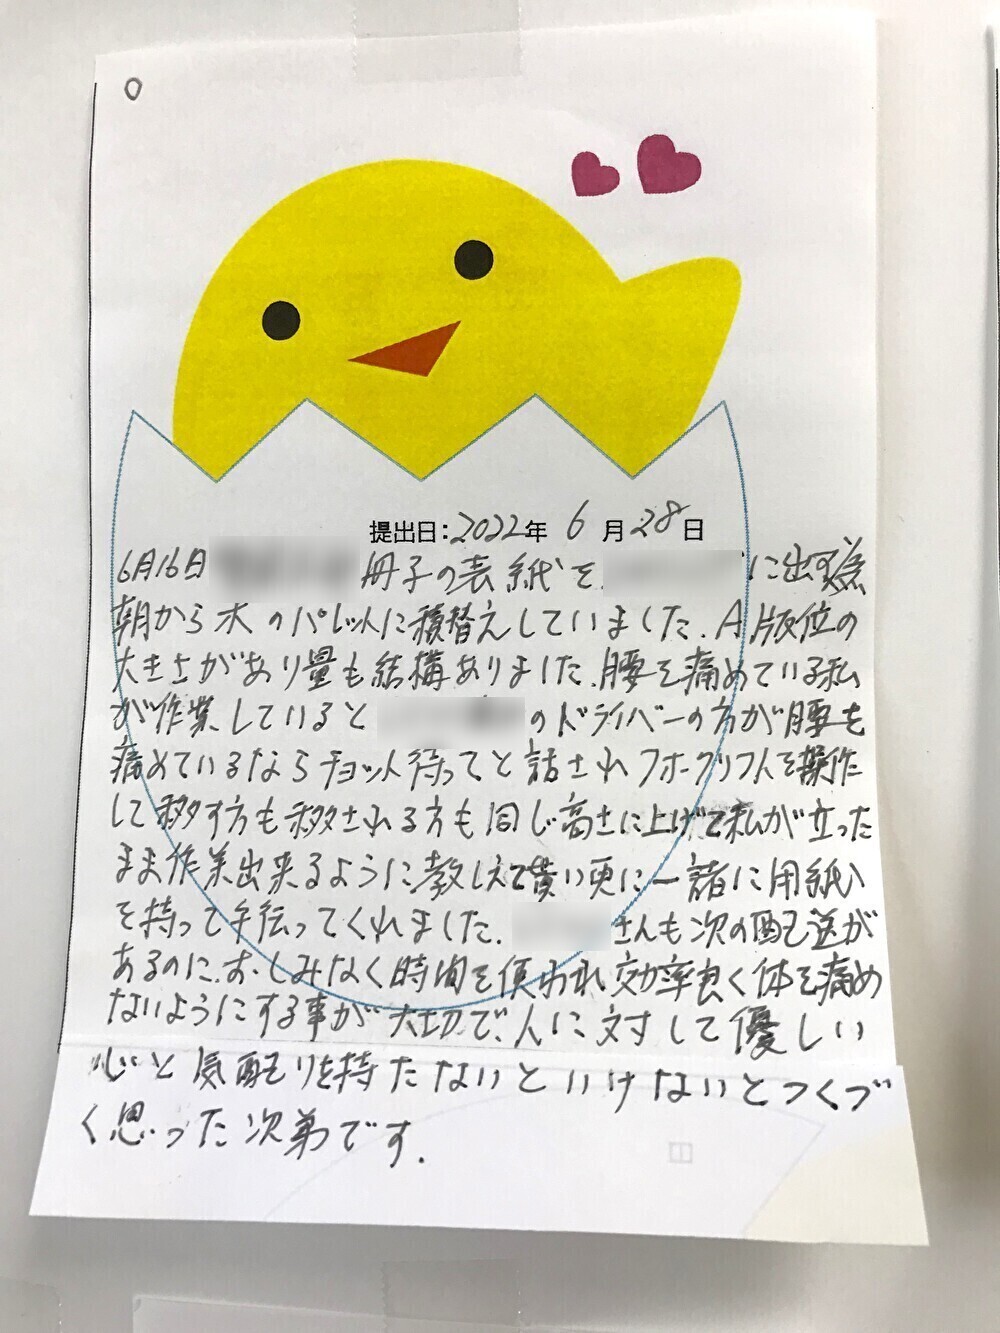 提出日：2022年 6月 28日
6月16日 冊子の表紙を に出す為
朝から木のパレットに積替えしていました.A版位の
大きさがあり量も結構ありました.腰を痛めている私
が作業していると のドライバーの方が腰を
痛めているならチョット待ってと話されフォークリフトを操作
して移す方も移される方も同じ高さに上げて私が立った
まま作業出来るように教えて貰い更に一諸に用紙
を持って手伝ってくれました. さんも次の配送が
あるのに.おしみなく時間を使われ効率良く体を痛め
ないようにする事が大切で、人に対して優しい
心と気配りを持たないといけないとつくづ
く思った次第です.